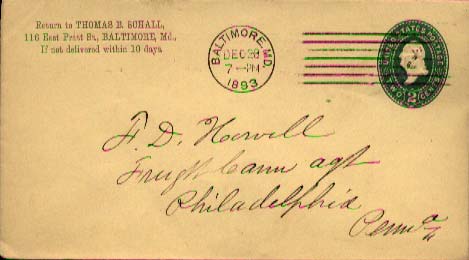 Return to THOMAS B. SCHALL,
116 East Pratt St., BALTIMORE, Md.,
If not delivered within 10 days.
BALTIMORE, MD.
DEC 28
7-PM
1893
UNITED STATES POSTAGE
TWO 2 CENTS
F. D. Howell
Freight Cann agt
Philadelphia
Penna